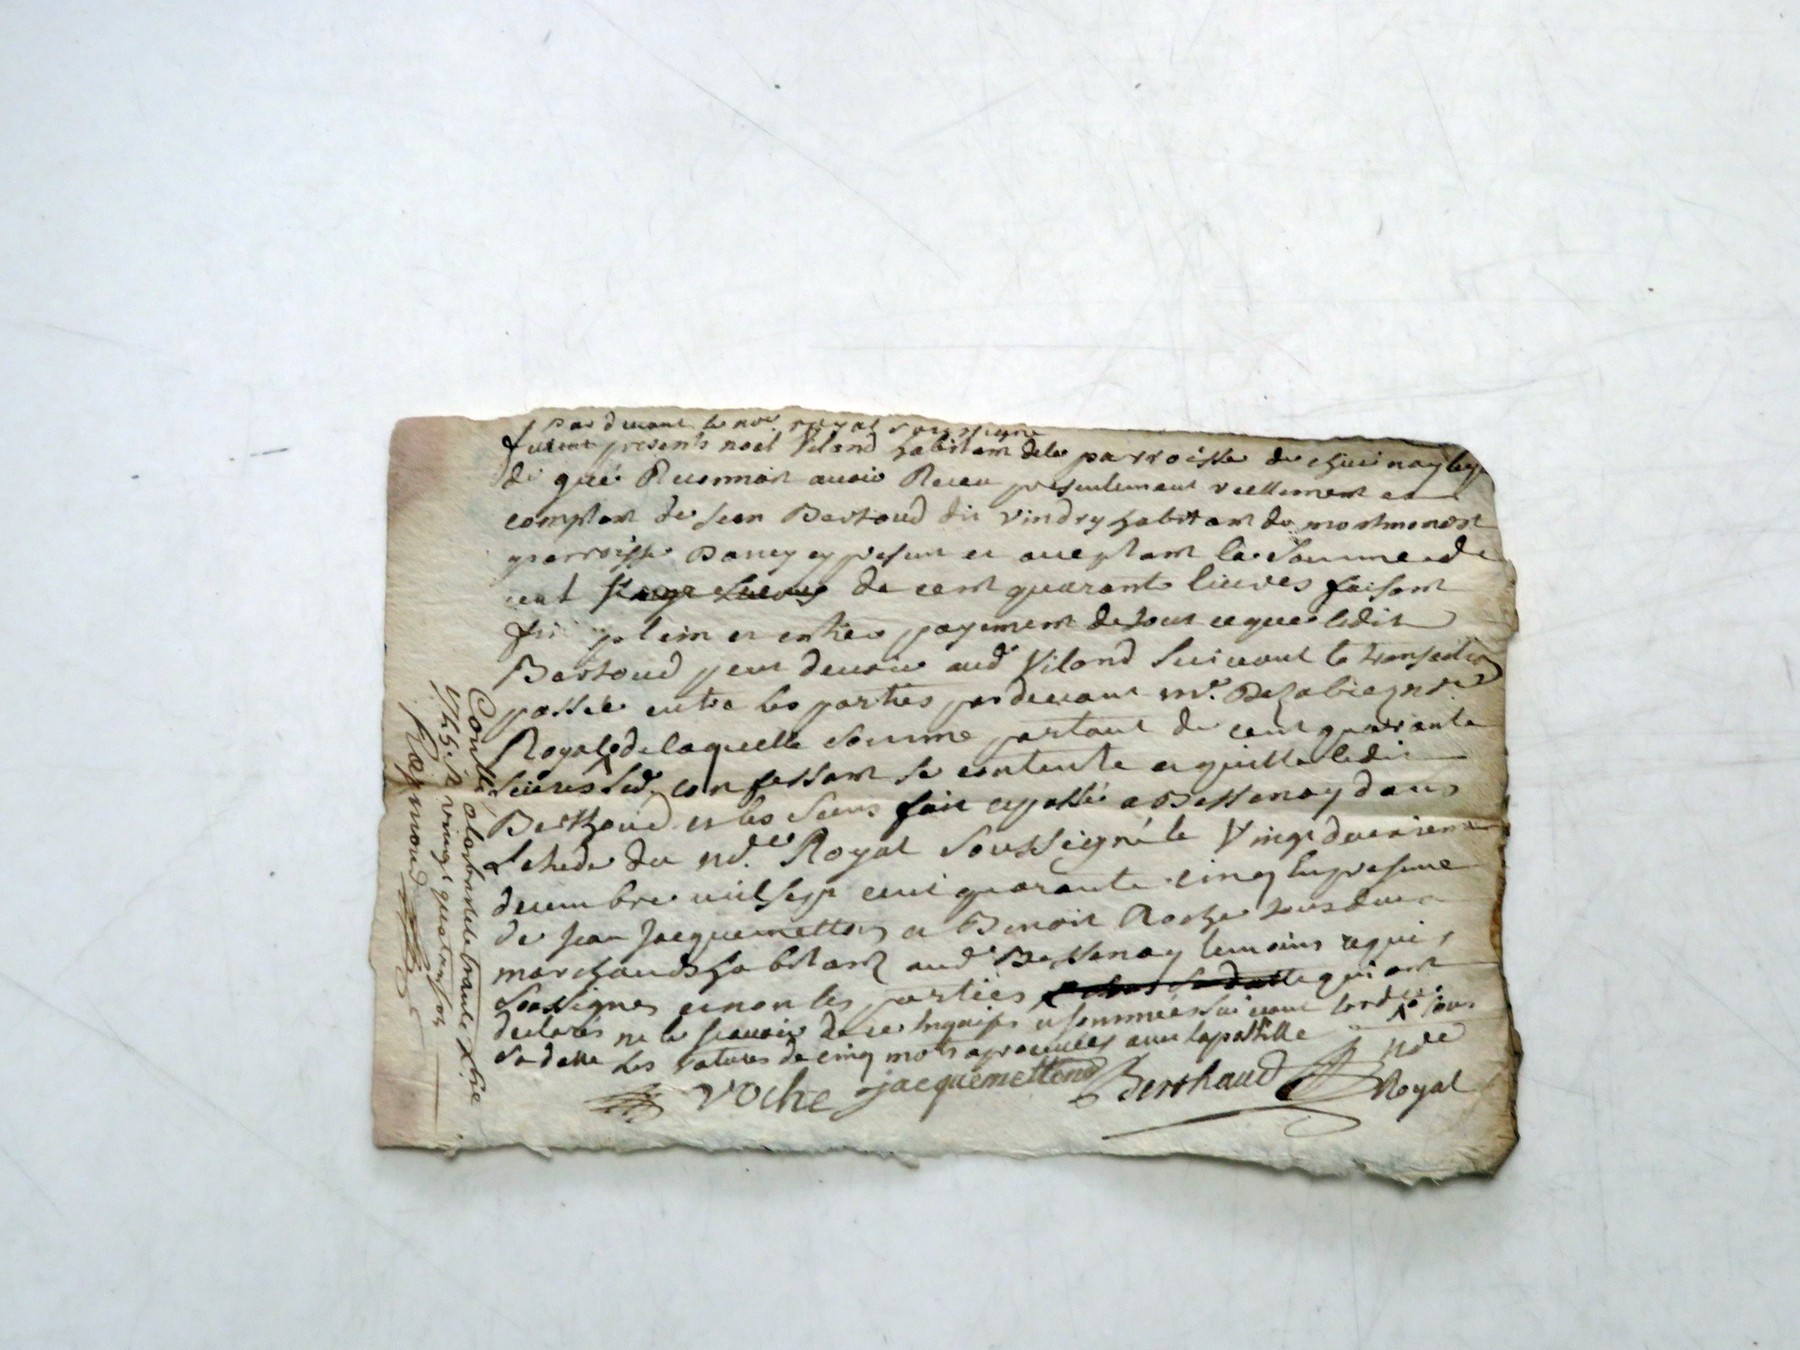 par devant le no.re royal soussigné
furent presents noel Viland habitant de la parroisse de
de gré Reconnait avoir Receu presentement reellement et
comptant de jean Bertoud dit vindry habitant de montmenot
parroisse Dancy cy present et acceptant la Somme de
cent de cent quarante livres faisant
plein et entier payement de tout ce que ledit
Bertoud peut devoir aud. Viland Suivant la transaction
passée entre les parties par devant m.e
Royal de laquelle Somme partant de cent quarante
livres led. confessant se contente et quitte ledit
Berthoud et les Siens fait et passé a Bessenay dans
Letude du no.re Royal Soussigné le Vingt deuxieme
decembre mil sept cent quarante cinq En presence
de jean jacquemetton et Benoit Roche tous deux
marchands habitants aud. Bessenay temoins requis
Soussignes et non les parties qui ont
declarés ne le scavoir de ce Enquis et sommées suivant lord.ce
les ratures de cinq mots aprouvées avec lapostille
roche jacquemetton Berthaud no.re
Royal
Conllé a larbresle le trante x.bre
1745 R vingt quatre sols
Raymond